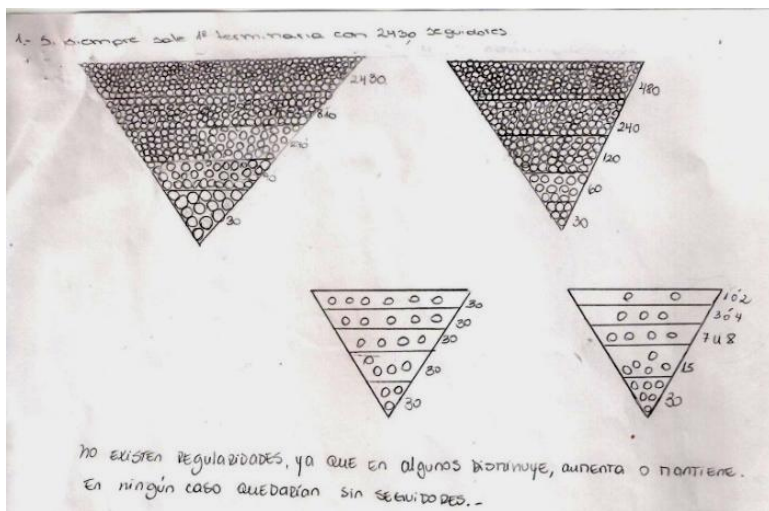 1.- Si siempre sale 1º terminaria con 2430 seguidores
2430
810
270
90
30
480
240
120
60
30
30
30
30
30
30
1 ó 2
3 ó 4
7 u 8
15
30
NO EXISTEN REGULARIDADES, ya que EN algunos DISMINUYE, AUMENTA O MANTIENE.
EN ningún caso QUEDARÍAN SIN SEGUIDORES.-